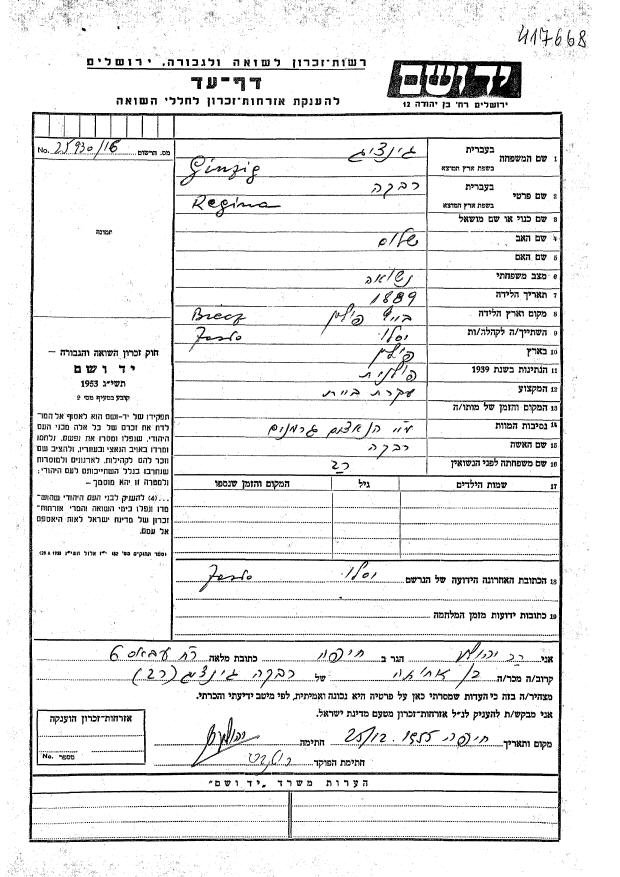 417668
רשות-זכרון לשואה ולגבורה, ירושלים
דף-עד
להענקת אזרחות-זכרון לחללי השואה
יד ושם
ירושלים רח' בן יהודה 12
מס. הרשום
No.
תמונה
1 שם המשפחה בעברית גינציג
בשפת ארץ המוצא Ginzig
2 שם פרטי בעברית רבקה
בשפת ארץ המוצא Regina
3 שם כנוי או שם מושאל
4 שם האב שלום
5 שם האם
6 מצב משפחתי נשואה
7 תאריך הלידה 1889
8 מקום וארץ הלידה פולין Biecz
9 השתייך/ה לקהלה/ות יסלו Jasło
10 בארץ פולין
11 הנתינות בשנת 1939 פולנית
12 המקצוע עקרת בית
13 המקום והזמן של מותו/ה
14 נסיבות המוות ע"י הנאצים גרמנים
15 שם האשה רבקה
16 שם משפחתה לפני הנשואין רב
חוק זכרון השואה והגבורה —
יד ושם
תשי"ג 1953
קובע בסעיף מס' 2
תפקידו של יד-ושם הוא לאסוף אל המו-
לדת את זכרם של כל אלה מבני העם
היהודי, שנפלו ומסרו את נפשם, נלחמו
ומרדו באויב הנאצי ובעוזריו, ולהציב שם
וזכר להם לקהילות, לארגונים ולמוסדות
שנחרבו בגלל השתייכותם לעם היהודי;
ולמטרה זו יהא מוסמך—
...(4) להעניק לבני העם היהודי שהוש-
מדו ונפלו בימי השואה והמרי אזרחות-
זכרון של מדינת ישראל לאות היאספם
אל עמם.
17 שמות הילדים גיל המקום והזמן שנספו
18 הכתובת האחרונה הידועה של הנרשם יסלו Jasło
19 כתובות ידועות מזמן המלחמה
אני רב הגר ב חיפה כתובת מלאה רח' עבאס 6
קרוב/ה מכר/ה בן אחותה של רבקה גינציג (רב)
מצהיר/ה בזה כי העדות שמסרתי כאן על פרטיה היא נכונה ואמיתית, לפי מיטב ידיעתי והכרתי.
אני מבקש/ת להעניק לנ"ל אזרחות-זכרון מטעם מדינת ישראל.
מקום ותאריך חיפה 25/12.1955 חתימה
חתימת הפוקד
אזרחות-זכרון הוענקה
מספר No.
הערות משרד "יד ושם"